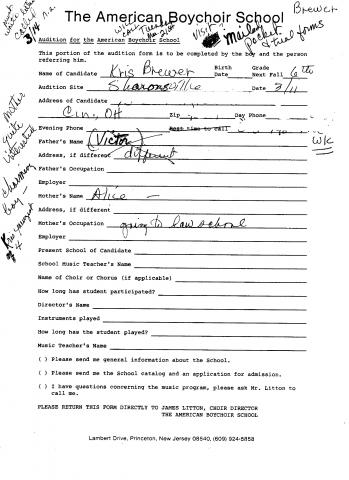 Brewer
The American Boychoir School
Audition for the American Boychoir School
VISIT
Mailed
Packet
& trial forms
This portion of the audition form is to be completed by the boy and the person
referring him.
Name of Candidate Kris Brewer Birth Date Grade Next Fall 6th
Audition Site Sharonville Date 3/11
Address of Candidate
Cin, OH Zip Day Phone
Evening Phone Best time to call
WK
Father's Name (Victor)
Address, if different different
Father's Occupation
Employer
Mother's Name Alice
Address, if different
Mother's Occupation going to law school
Employer
Present School of Candidate
School Music Teacher's Name
Name of Choir or Chorus (if applicable)
How long has student participated?
Director's Name
Instruments played
How long has the student played?
Music Teacher's Name
( ) Please send me general information about the School.
( ) Please send me the School catalog and an application for admission.
( ) I have questions concerning the music program, please ask Mr. Litton to
call me.
PLEASE RETURN THIS FORM DIRECTLY TO JAMES LITTON, CHOIR DIRECTOR
THE AMERICAN BOYCHOIR SCHOOL
Lambert Drive, Princeton, New Jersey 08540, (609) 924-5858
3/14 n.a.
Mother
quite
interested
Charming
boy -